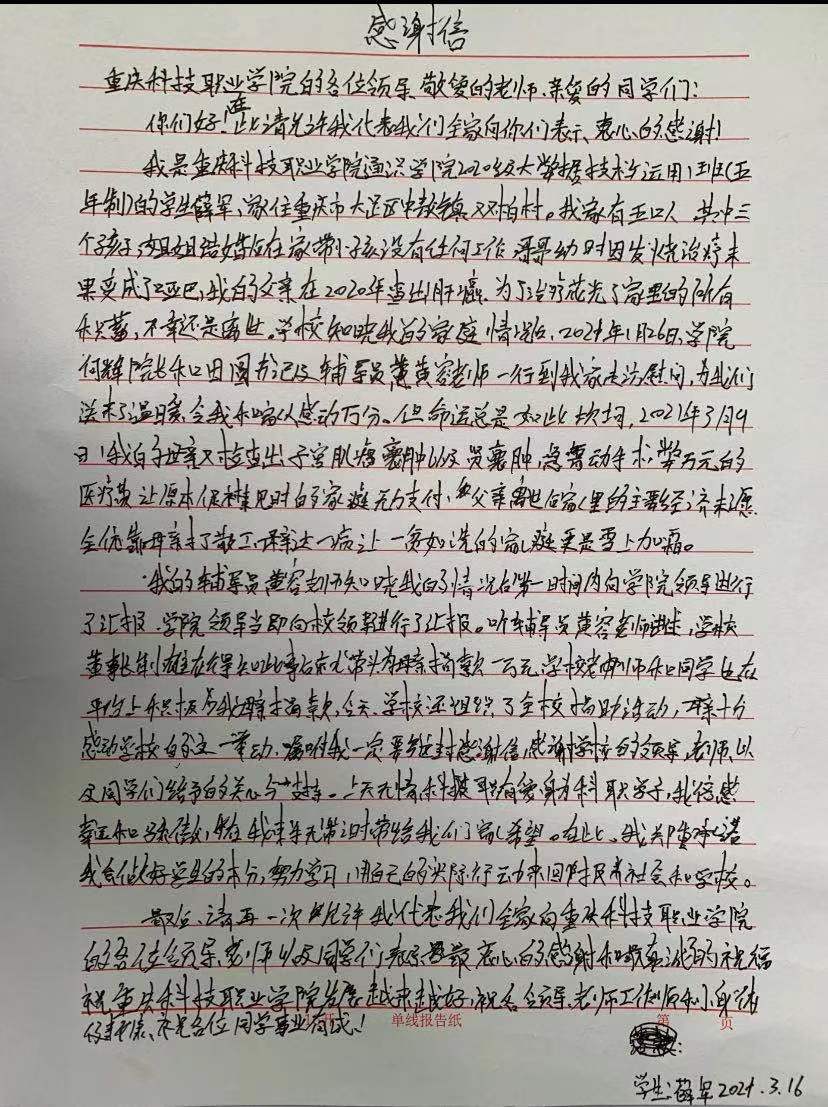 感谢信
重庆科技职业学院的各位领导、敬爱的老师、亲爱的同学们:
你们好!在此请允许我代表我们全家向你们表示衷心的感谢!
我是重庆科技职业学院通识学院2020级大数据技术与运用1班(五
年制)的学生薛军,家住重庆市大足区中敖镇双柏村。我家有五口人 其中三
个孩子,姐姐结婚后在家带小孩没有任何工作 哥哥幼时因发烧治疗未
果变成了哑巴,我的父亲在2020年查出肝癌 为了治疗花光了家里的所有
积蓄,不幸还是离世。学校知晓我的家庭情况后,2021年1月26日,学院
何辉院长和田园书记及辅导员黄容老师一行到我家走访慰问,为我们
送来了温暖,令我和家人感动万分。但命运总是如此坎坷,2021年3月9
日,我的母亲又检查出子宫肌瘤囊肿以及 囊肿,急需动手术,数万元的
医疗费让原本 的家庭无力支付,父亲离世后家里的主要经济来源
全依靠母亲打散工,母亲这一病让一贫如洗的家庭更是雪上加霜。
我的辅导员黄容老师知晓我的情况后第一时间内向学院领导进行
了汇报,学院领导当即向校领导进行了汇报。听辅导员黄容老师讲述,学校
董事长 在得知此事后 带头为母亲捐款一万元,学校老师和同学也在
平台上积极为我母亲捐款,今天,学校还组织了全校捐助活动,母亲十分
感动学校的这一举动,嘱咐我一定要写封感谢信,感谢学校的领导,老师,以
及同学们给予的关心与支持。上天无情,科技职院有爱,身为科职学子,我倍感
幸运和骄傲, 在我束手无策时带给我们家希望。在此,我郑重承诺
我会做好学生的本分,努力学习,用自己的实际行动来回附反卉社会和学校。
最后,请再一次允许我代表我们全家向重庆科技职业学院
的各位领导、老师以及同学们表示最衷心的感谢和最真诚的祝福
祝重庆科技职业学院发展越来越好,祝各领导、老师工作顺利,身体
健康、祝各位同学事业有成!
单线报告纸 第 页
学生:薛军2021.3.16